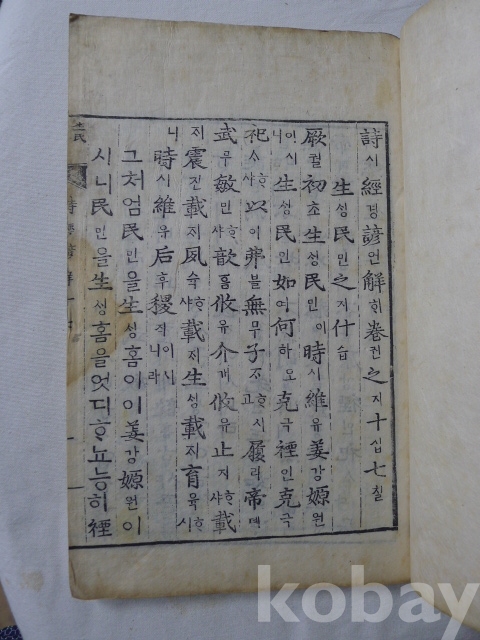 詩시經경諺언解ᄒᆡ卷권之지十십七칠
生ᄉᆡᆼ民민之지什십
厥궐初초生ᄉᆡᆼ民민이時시維유姜강嫄원
이시니生ᄉᆡᆼ民민如여何하오克극禋인克극
祀ᄉᆞᄒᆞ샤以이弗블無무子ᄌᆞᄒᆞ시고履리帝뎨
武무敏민ᄒᆞ샤歆흠攸유介개攸유止지ᄒᆞ샤載
ᄌᆡ震진載ᄌᆡ夙슉ᄒᆞ샤載ᄌᆡ生ᄉᆡᆼ載ᄌᆡ育육ᄒᆞ시
니時시維유后후稷직이시니라
그처엄民민을生ᄉᆡᆼ홈이이姜강嫄원이
시니民민을生ᄉᆡᆼ홈을엇디ᄒᆞ뇨능히禋
生民
kobay